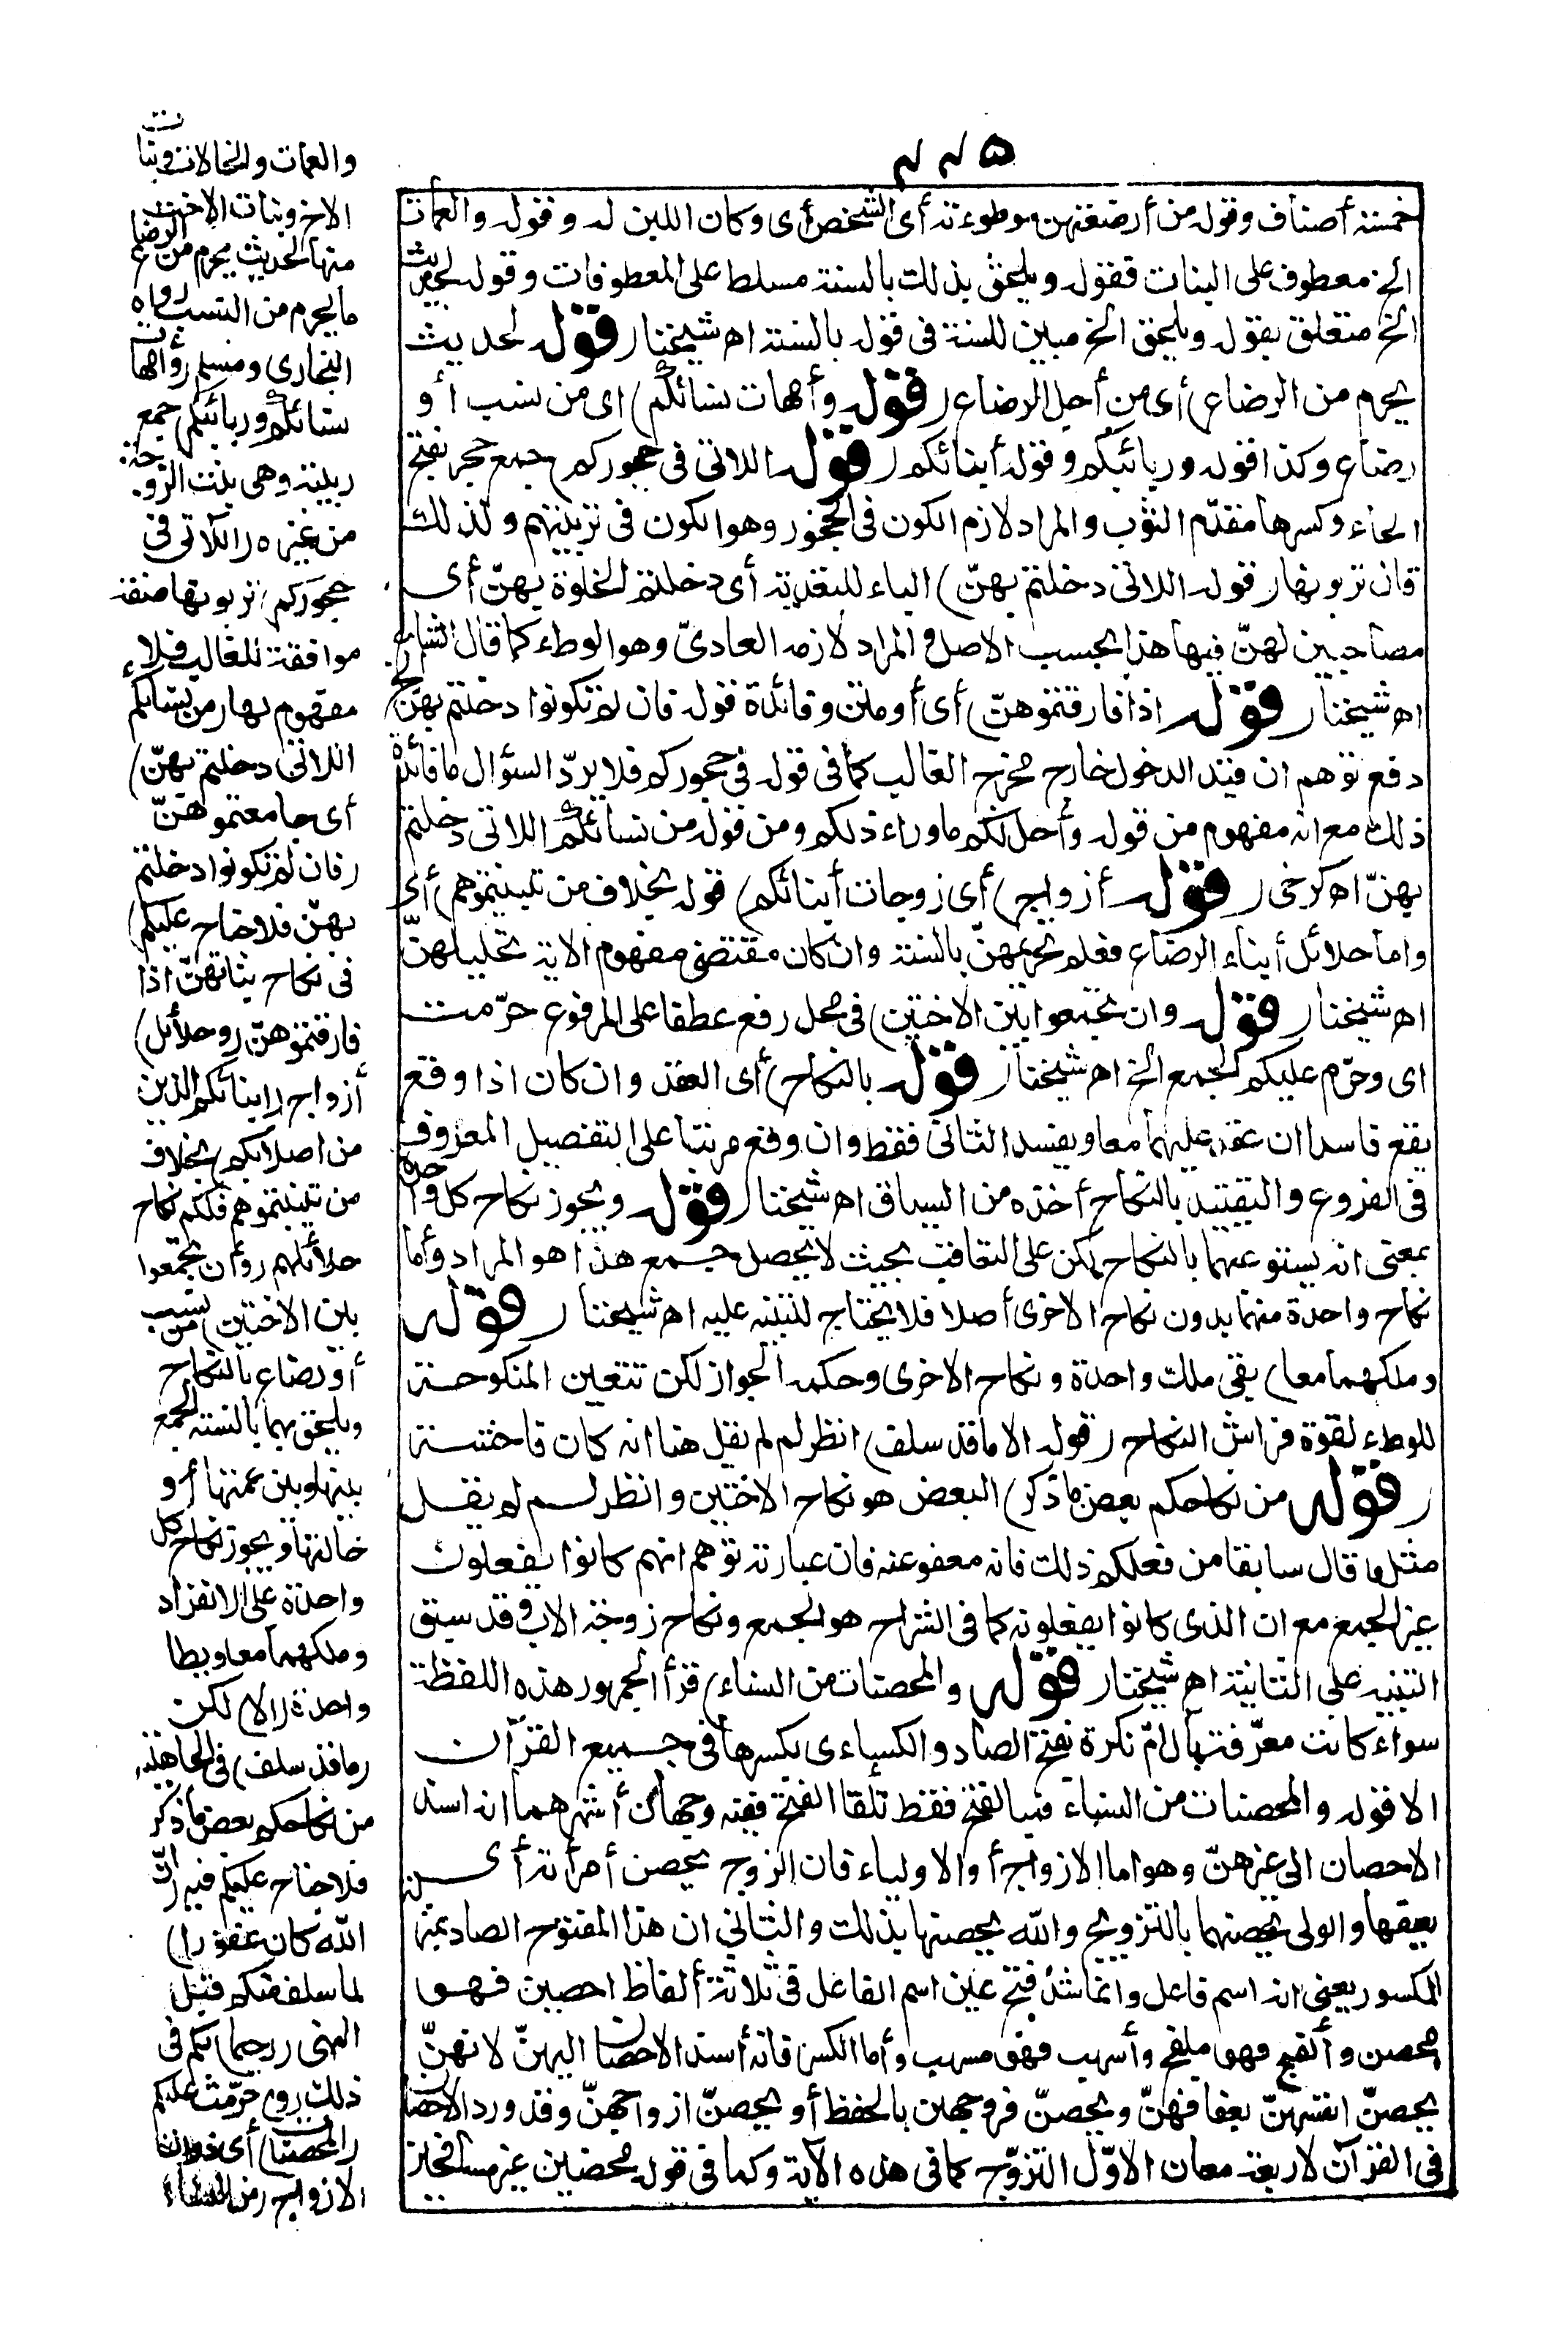 خمسة أصناف وقوله من أرضعتهن موطوءته أى الشخص أى وكان اللبن له وقوله والعمات
الخ معطوف على البنات فقوله ويلحق بذلك بالسنة مسلط على المعطوفات وقوله لحديث
الخ متعلق بقوله ويلحق الخ مبين للسنة فى قوله بالسنة اه شيخنا (قوله لحديث
يحرم من الرضاع) أى من أجل الرضاع (قوله وأمهات نسائكم) اى من نسب أو
رضاع وكذا قوله وربائبكم وقوله أبنائكم (قوله اللاتى فى حجوركم) جمع حجر بفتح
الحاء وكسرها مقدّم الثوب والمراد لازم الكون فى الحجور وهو الكون فى تربيتهم ولذلك
قال تربونها (قوله اللاتى دخلتم بهنّ) الباء للتعدية أى دخلتم الخلوة بهنّ أى
مصاحبين لهنّ فيها هذا بحسب الاصل والمراد لازمه العادىّ وهو الوطء كما قال الشارح
اه شيخنا (قوله اذا فارقتموهنّ) أى أو متن وفائدة قوله فان لم تكونوا دخلتم بهنّ الخ
دفع توهم ان قيد الدخول خارج مخرج الغالب كما فى قوله فى حجوركم فلا يردّ السؤال ما فائدة
ذلك مع انه مفهوم من قوله وأحل لكم ما وراء ذلكم ومن قوله من نسائكم اللاتى دخلتم
بهنّ اه كرخى (قوله أزواج) أى زوجات أبنائكم) قوله بخلاف من تبنيتموهم) أى
واما حلائل أبناء الرضاع فعلم تحريمهنّ بالسنة وان كان مقتضى مفهوم الاية تحليلهنّ
اه شيخنا (قوله وان تجمعوا بين الاختين) فى محل رفع عطفا على المرفوع حرّمت
اى وحرّم عليكم الجمع الخ اه شيخنا (قوله بالنكاح) أى العقد وان كان اذا وقع
يقع فاسدا ان عقد عليهما معا ويفسد الثانى فقط وان وقع مرتبا على التفصيل المعروف
فى الفروع والتقييد بالنكاح أخذه من السياق اه شيخنا (قوله ويجوز نكاح كل واحدة
بمعنى انه يستوعبهما بالنكاح لكن على التعاقب بحيث لا يحصل جمع هذا هو المراد وأما
نكاح واحدة منهما بدون نكاح الاخرى أصلا فلا يحتاج للتنبيه عليه اه شيخنا (قوله
وملكهما معا) بقى ملك واحدة ونكاح الاخرى وحكمه الجواز لكن تتعين المنكوحة
للوطء لقوة فراش النكاح (قوله الا ما قد سلف) انظر لم لم يقل هنا انه كان فاحشة
(قوله من نكاحكم بعض ما ذكر) البعض هو نكاح الاختين وانظر لم لم يقل
مثل ما قال سابقا من فعلكم ذلك فانه معفو عنه فان عبارته توهم انهم كانوا يفعلون
غير الجمع مع ان الذى كانوا يفعلونه كما فى الشراح هو الجمع ونكاح زوجة الاب وقد سبق
التنبيه على الثانية اه شيخنا (قوله والمحصنات من النساء) قرأ الجمهور هذه اللفظة
سواء كانت معرّفة بأل أم نكرة بفتح الصاد والكسائى بكسرها فى جميع القرآن
الا قوله والمحصنات من النساء فبالفتح فقط فأما الفتح ففيه وجهان أشهرهما انه اسند
الاحصان الى غيرهنّ وهو اما الازواج أو الاولياء فان الزوج يحصن أمرأته أى
يعفها والولى يحصنها بالتزويج والله يحصنها بذلك والثانى ان هذا المفتوح الصاد بمنزلة
المكسور يعنى انه اسم فاعل وانما شذ فتح عين اسم الفاعل فى ثلاثة ألفاظ احصن فهو
محصن وألفج فهو ملفج وأسهب فهو مسهب وأما الكسر فانه أسند الاحصان اليهنّ لانهنّ
يحصنّ انفسهنّ بعفافهنّ ويحصنّ فروجهن بالحفظ أو يحصنّ ازواجهنّ وقد ورد الاحصان
فى القرآن لاربعة معان الاوّل التزوّج كما فى هذه الآية وكما فى قوله محصنين غير مسافحين
والعمات والخالات وبنات
الاخ وبنات الاخت
منها لحديث يحرم من الرضاع
ما يحرم من النسب رواه
البخارى ومسلم (وأمهات
نسائكم وربائبكم) جمع
ربيبة وهى بنت الزوجة
من غيره (اللاتى فى
حجوركم) تربونها صفة
موافقة للغالب فلا
مفهوم لها (من نسائكم
اللاتى دخلتم بهنّ)
أى جامعتموهنّ
(فان لم تكونوا دخلتم
بهنّ فلا جناح عليكم)
فى نكاح بناتهنّ اذا
فارقتموهنّ (وحلائل)
أزواج (أبنائكم الذين
من اصلابكم) بخلاف
من تبنيتموهم فلكم نكاح
حلائلهم (وأن تجمعوا
بين الاختين) من نسب
أو رضاع بالنكاح
ويلحق بهما بالسنة الجمع
بينها وبين عمتها أو
خالتها ويجوز نكاح كل
واحدة على الانفراد
وملكهما معا ويطأ
واحدة (الا) لكن
(ما قد سلف) فى الجاهلية
من نكاحكم بعض ما ذكر
فلا جناح عليكم فيه (انّ
الله كان غفورا)
لما سلف منكم قبل
النهى (رحيما) بكم فى
ذلك (و) حرّمت عليكم
(المحصنات) أى ذوات
الازواج (من النساء)